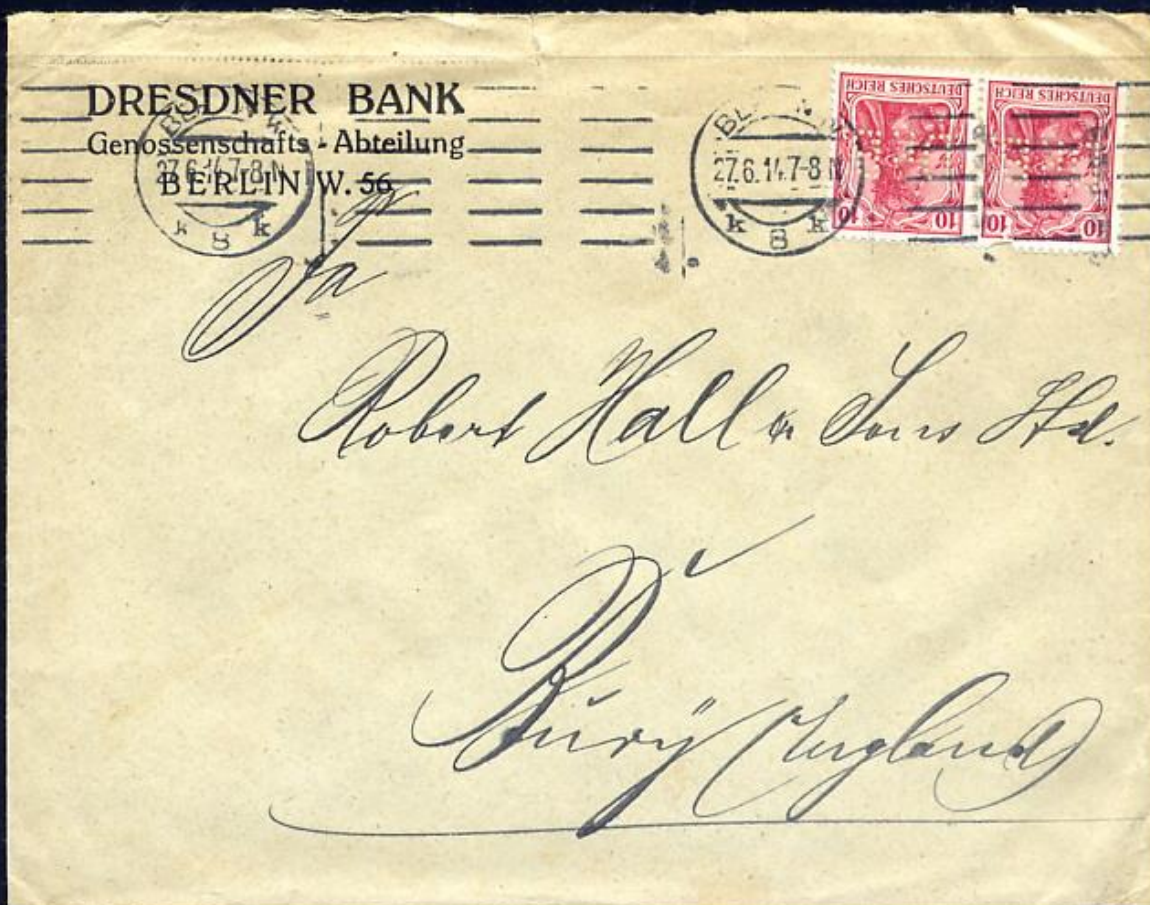 DRESDNER BANK
Genossenschafts-Abteilung
BERLIN W. 56
27.6.14.7-8 N
k 8 k
27.6.14.7-8 N
k 8 k
DEUTSCHES REICH
10 10
DEUTSCHES REICH
10 10
Fa
Robert Hall & Sons Ltd.
Bury (England)